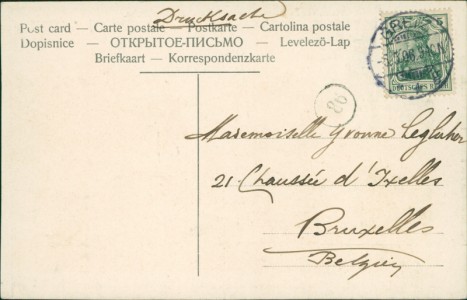 Drucksache
Post card — Carte postale — Postkarte — Cartolina postale
Dopisnice — ОТКРЫТОЕ-ПИСЬМО — Levelező-Lap
Briefkaart — Korrespondenzkarte
DEUTSCHES REICH
86
Mademoiselle Yvonne
21 Chaussée d'Ixelles
Bruxelles
Belgien